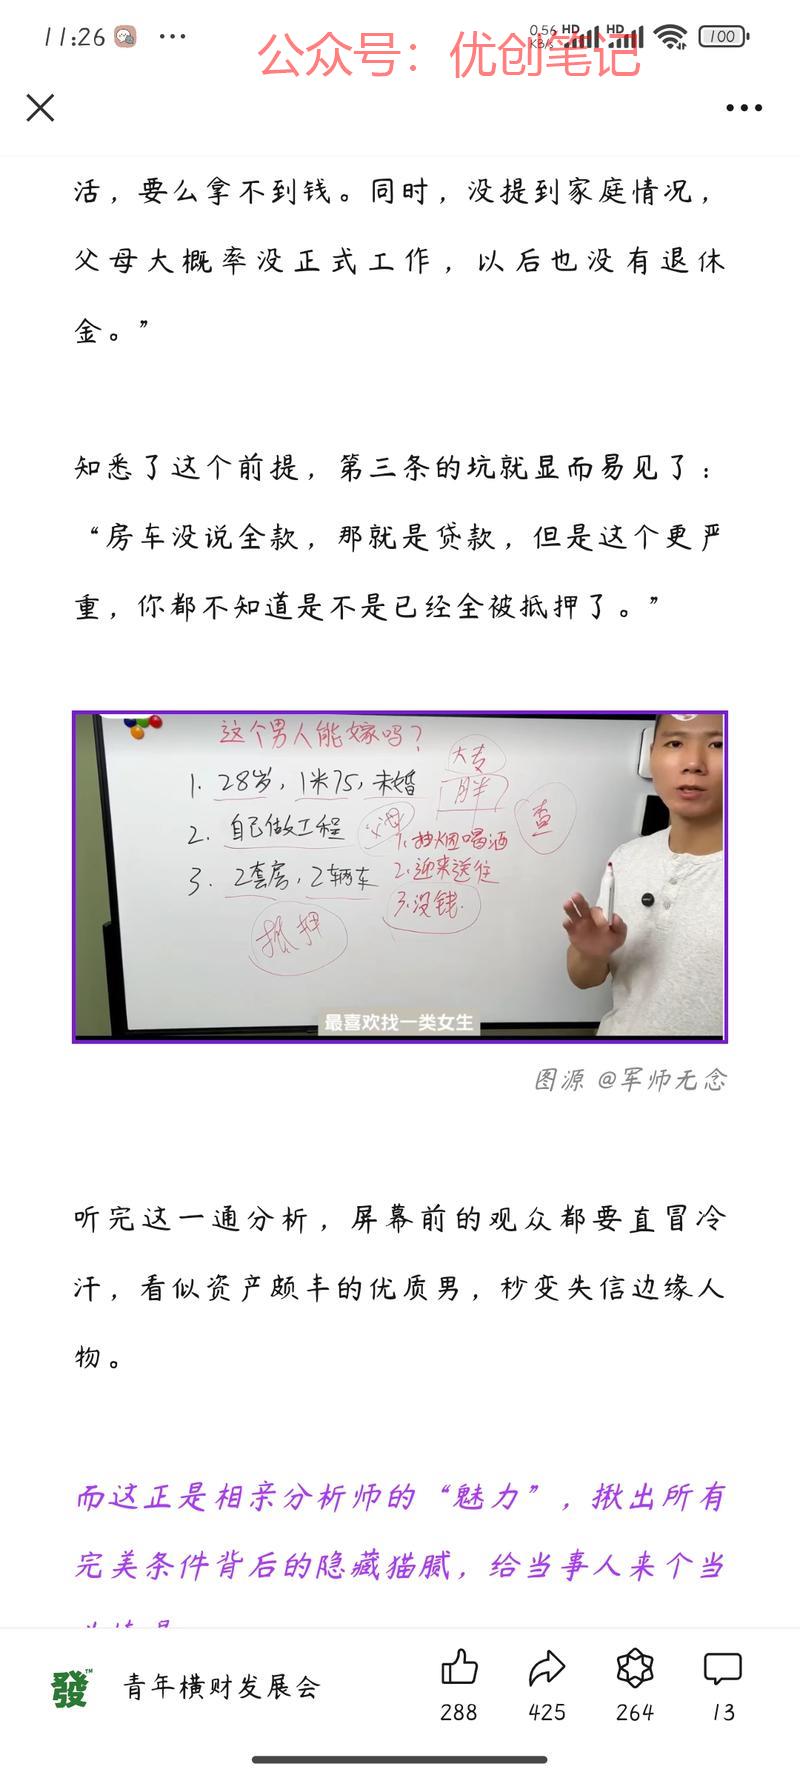 11:26
0.56
KB/s
HD
HD
100
公众号：优创笔记
活，要么拿不到钱。同时，没提到家庭情况，
父母大概率没正式工作，以后也没有退休
金。”
知悉了这个前提，第三条的坑就显而易见了：
“房车没说全款，那就是贷款，但是这个更严
重，你都不知道是不是已经全被抵押了。”
这个男人能嫁吗？
大专
胖
查
1. 28岁，1米75，未婚
2. 自己做工程
父母
1.抽烟喝酒
3. 2套房，2辆车
2.迎来送往
3.没钱.
抵押
最喜欢找一类女生
图源 @军师无念
听完这一通分析，屏幕前的观众都要直冒冷
汗，看似资产颇丰的优质男，秒变失信边缘人
物。
而这正是相亲分析师的“魅力”，揪出所有
完美条件背后的隐藏猫腻，给当事人来个当
發™
青年横财发展会
288
425
264
13